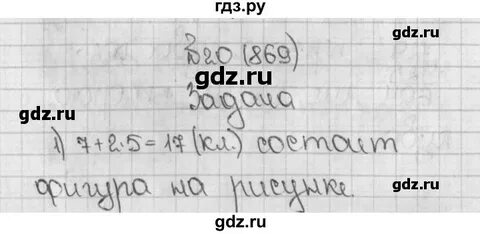 гдз.ру
В20 (869)
gdz.ru
gdz.ru
Задача
1) 7+2·5=17 (кл.) состоит
gdz.ru
фигура на рисунке.
gdz.ru
gdz.ru